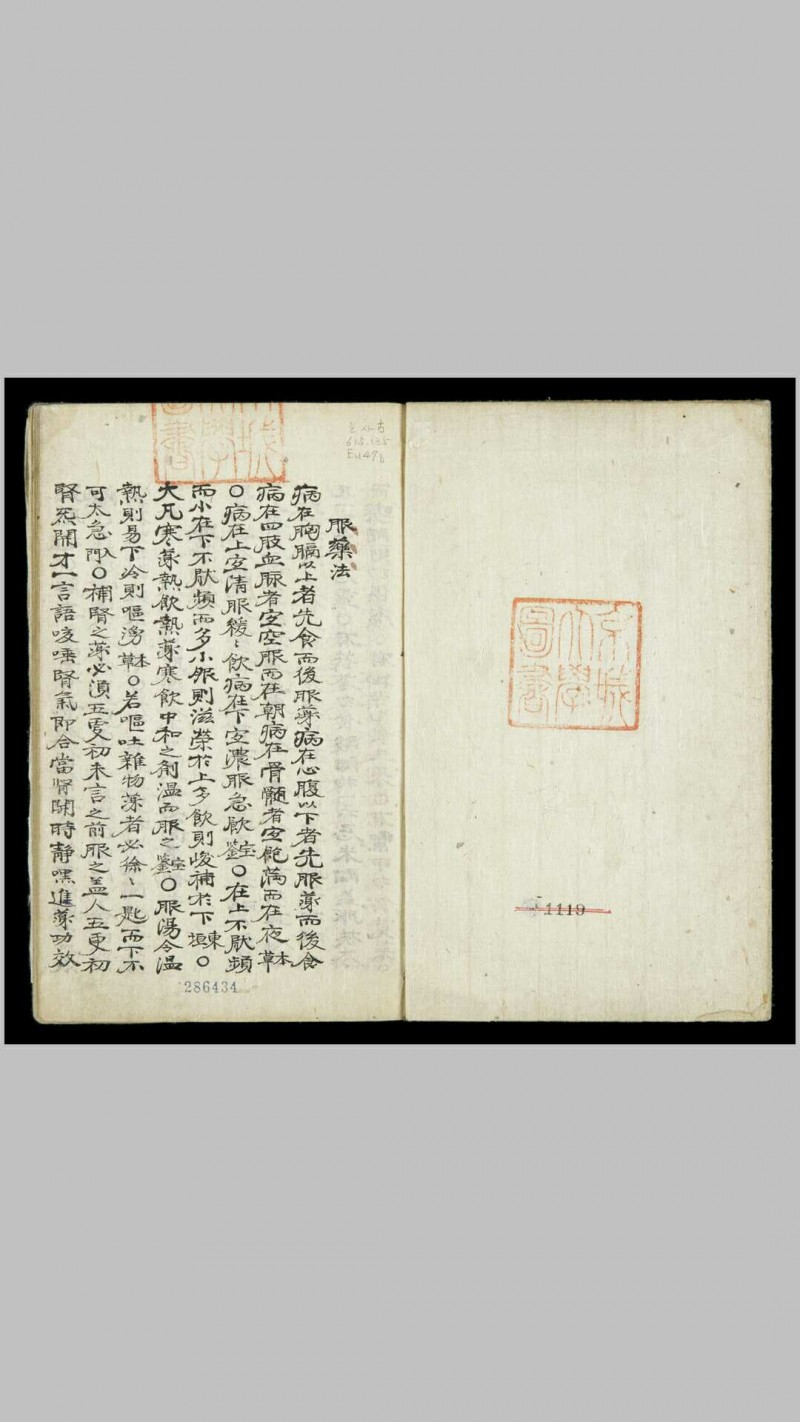 京城
大學
圖書
1119
615.135
服藥法
病在胸膈以上者先食而後服藥病在心腹以下者先服藥而後食
病在四肢血脉者宜空服而在朝病在骨髓者宜飽滿而在夜本草
〇病在上宜清服緩〻飲病在下宜濃服急飲宝鑒〇在上不厭頻
而小在下不厭頻而多小服則滋榮於上多飲則峻補於下東垣〇
大凡寒藥熱飲熱藥寒飲中和之劑溫而服之宝鑒〇服湯令溫
熱則易下冷則嘔湧本草〇若嘔吐雜物藥者必徐〻一匙而下不
可太急入門〇補腎之藥必須五更初未言之前服之盖人五更初
腎炁開才一言語咳唾腎氣即合當腎開時靜嘿進藥功效
286434